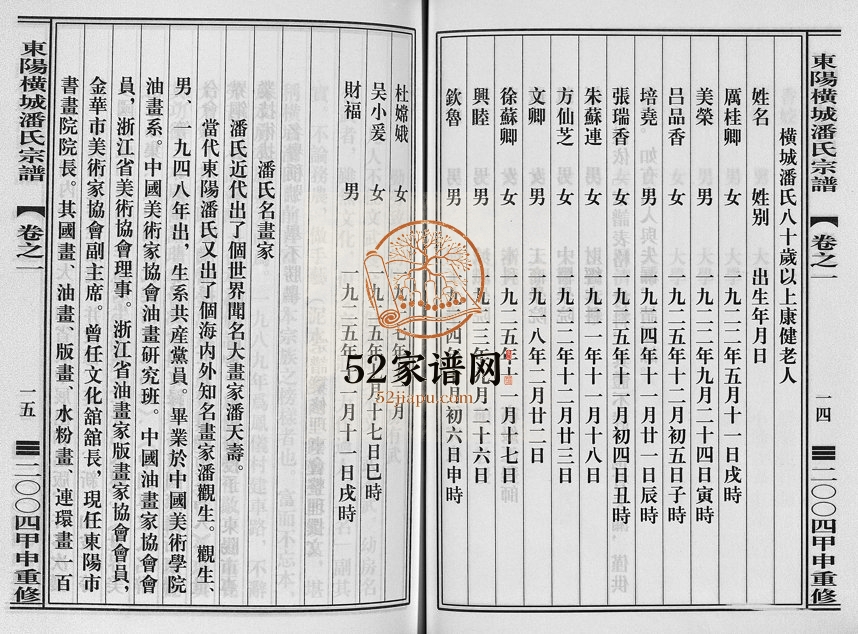 東陽橫城潘氏宗譜 【卷之一 一四 二〇〇四甲申重修
橫城潘氏八十歲以上康健老人
姓名 姓别 出生年月日
厲桂卿 女 一九二二年五月十一日戌時
美榮 男 一九二二年九月二十四日寅時
吕品香 女 一九二五年十二月初五日子時
培堯 男 一九二四年十一月廿一日辰時
張瑞香 女 一九二五年十月初四日丑時
朱蘇連 女 一年十一月十八日
方仙芝 女 一九二二年十二月廿三日
文卿 男 一九一八年二月廿二日
徐蘇卿 女 一九二五年 一月十七日
興睦 男 三年 月三十六日
欽魯 男 四年 月初六日申時
杜嫦娥 女 七年 月
吴小爰 女 一九 五年 月十七日巳時
財福 男 一九二五年十一月十一日戌時
潘氏名畫家
潘氏近代出了個世界聞名大畫家潘天壽。
當代東陽潘氏又出了個海内外知名畫家潘觀生。觀生、
男、一九四八年出，生系共産黨員。畢業於中國美術學院
油畫系。中國美術家協會油畫研究班。中國油畫家協會會
員，浙江省美術協會理事。浙江省油畫家版畫家協會會員，
金華市美術家協會副主席。曾任文化舘舘長，現任東陽市
書畫院院長。其國畫、油畫、版畫、水粉畫、連環畫一百
東陽橫城潘氏宗譜 【卷之一 一五 二〇〇四甲申重修
52家谱网
52jiapu.com